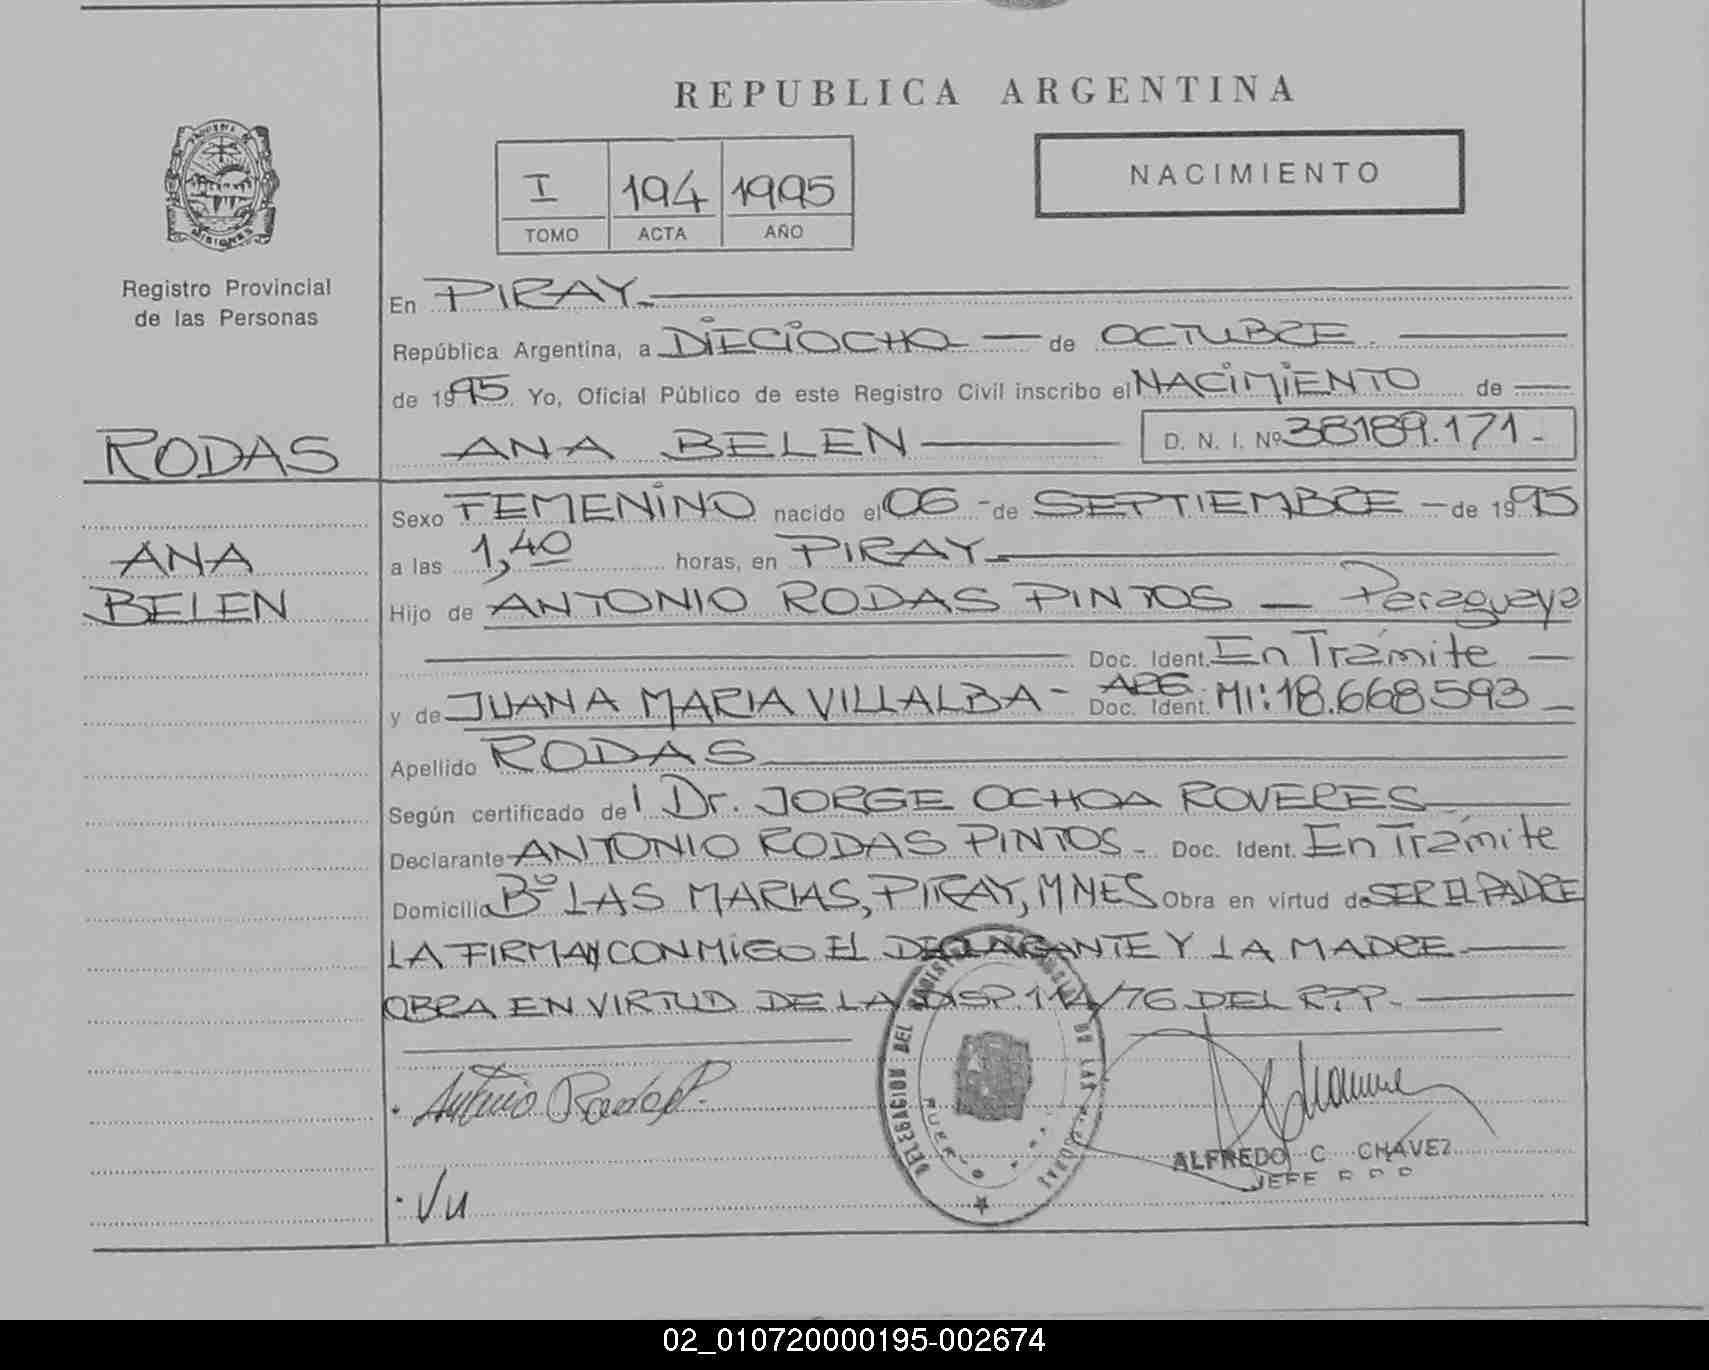 REPUBLICA ARGENTINA
I 194 1995
TOMO ACTA AÑO
NACIMIENTO
Registro Provincial
de las Personas
RODAS
ANA
BELEN
En PIRAY
República Argentina, a DIECIOCHO — de OCTUBRE.
de 1995. Yo, Oficial Público de este Registro Civil inscribo el NACIMIENTO de
ANA BELEN D. N. I. Nº 38189.171.-
Sexo FEMENINO nacido el 06 - de SEPTIEMBRE - de 1995
a las 1,40 horas, en PIRAY
Hijo de ANTONIO RODAS PINTOS — Paraguaya
Doc. Ident. En Trámite —
y de JUANA MARIA VILLALBA - ARG. Doc. Ident. MI: 18.668.593
Apellido RODAS
Según certificado del Dr. JORGE OCHOA ROVERES
Declarante ANTONIO RODAS PINTOS - Doc. Ident. En Trámite
Domicilio Bº LAS MARIAS, PIRAY, MNES Obra en virtud de SER EL PADRE
LA FIRMAN CONMIGO EL DECLARANTE Y LA MADRE
OBRA EN VIRTUD DE LA DISP. 114/76 DEL R.P.P.
Antonio Rodas P.
DELEGACION DEL REGISTRO DE LAS
ALFREDO C CHAVEZ
JEFE
02_010720000195-002674